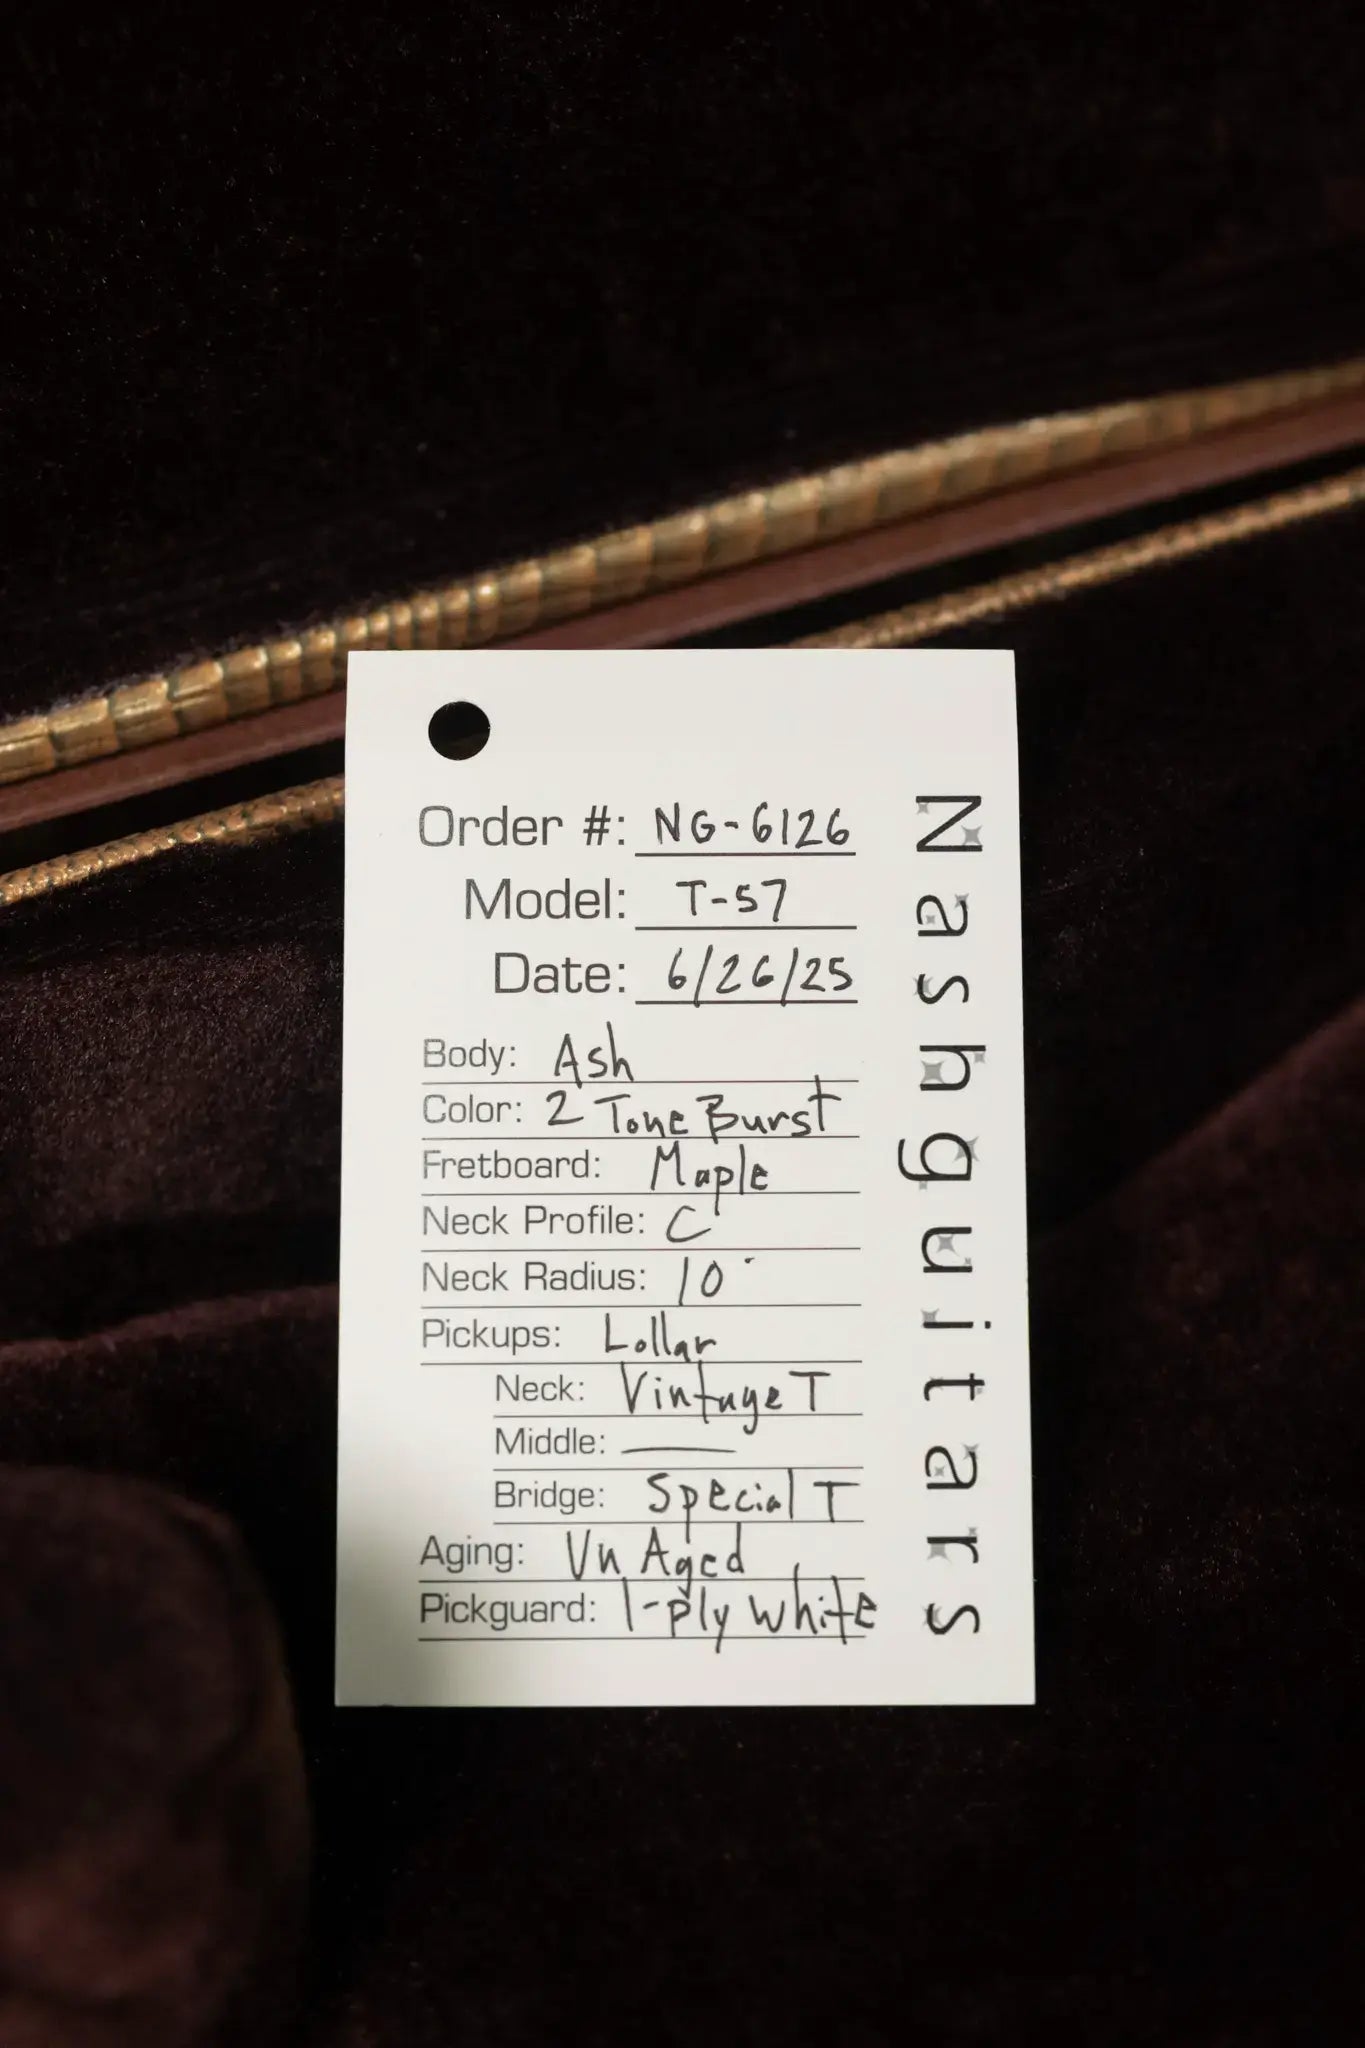 Order #: NG-6126
Model: T-57
Date: 6/26/25
Body: Ash
Color: 2 Tone Burst
Fretboard: Maple
Neck Profile: C
Neck Radius: 10"
Pickups: Lollar
Neck: Vintage T
Middle: —
Bridge: Special T
Aging: Un Aged
Pickguard: 1-ply white
Nashguitars